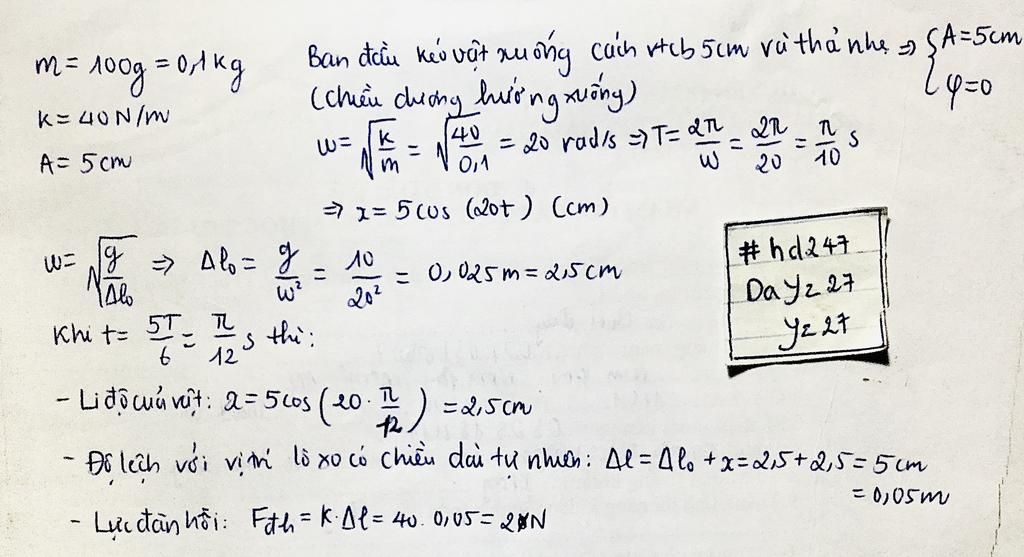 m = 100g = 0,1kg
k = 40 N/m
A = 5cm
Ban đầu kéo vật xuống cách vtcb 5cm và thả nhẹ ⇒ { A = 5cm
φ = 0
(chiều dương hướng xuống)
ω = √(k/m) = √(40/0,1) = 20 rad/s ⇒ T = 2π/ω = 2π/20 = π/10 s
⇒ x = 5cos (20t) (cm)
ω = √(g/Δl₀) ⇒ Δl₀ = g/ω² = 10/20² = 0,025m = 2,5cm
Khi t = 5T/6 = π/12 s thì:
- Li độ của vật: x = 5cos(20 · π/12) = 2,5cm
- Độ lệch với vị trí lò xo có chiều dài tự nhiên: Δl = Δl₀ + x = 2,5 + 2,5 = 5cm
= 0,05m
- Lực đàn hồi: Fđh = k·Δl = 40 . 0,05 = 2N
#hd247
Dayz27
yz27